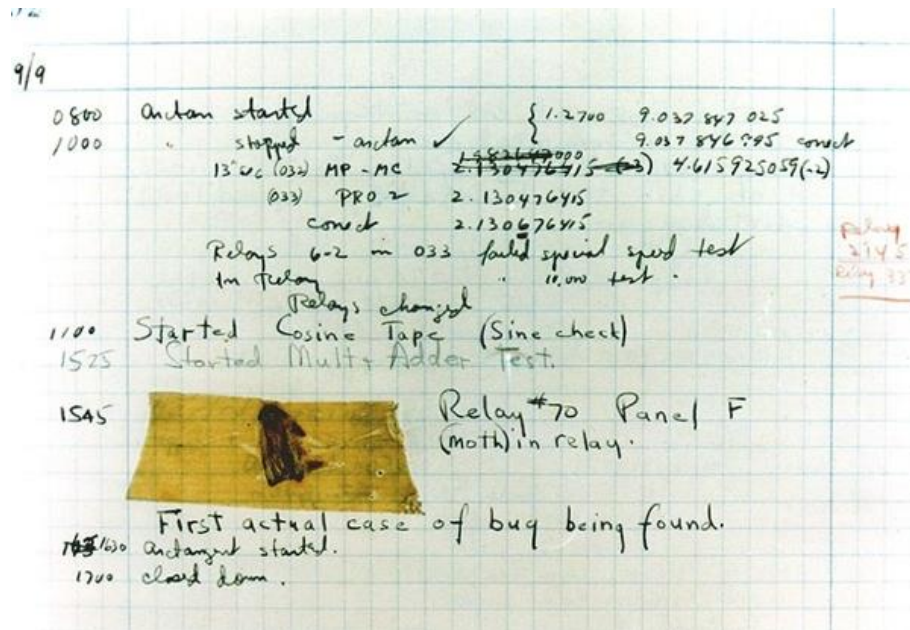 9/9
0800 Antan started { 1.2700 9.037 847 025
1000 " stopped - antan ✓ 9.037 846 795 correct
13" uc (032) MP - MC 2.130476415 4.615925059(-2)
(033) PRO 2 2.130476415
correct 2.130676415
Relays 6-2 in 033 failed special speed test
In Relay " 10,000 test .
Relay
2145
Relay 33
Relays changed
1100 Started Cosine Tape (Sine check)
1525 Started Mult + Adder Test.
1545 Relay #70 Panel F
(moth) in relay.
First actual case of bug being found.
1630 antangent started.
1700 closed down.